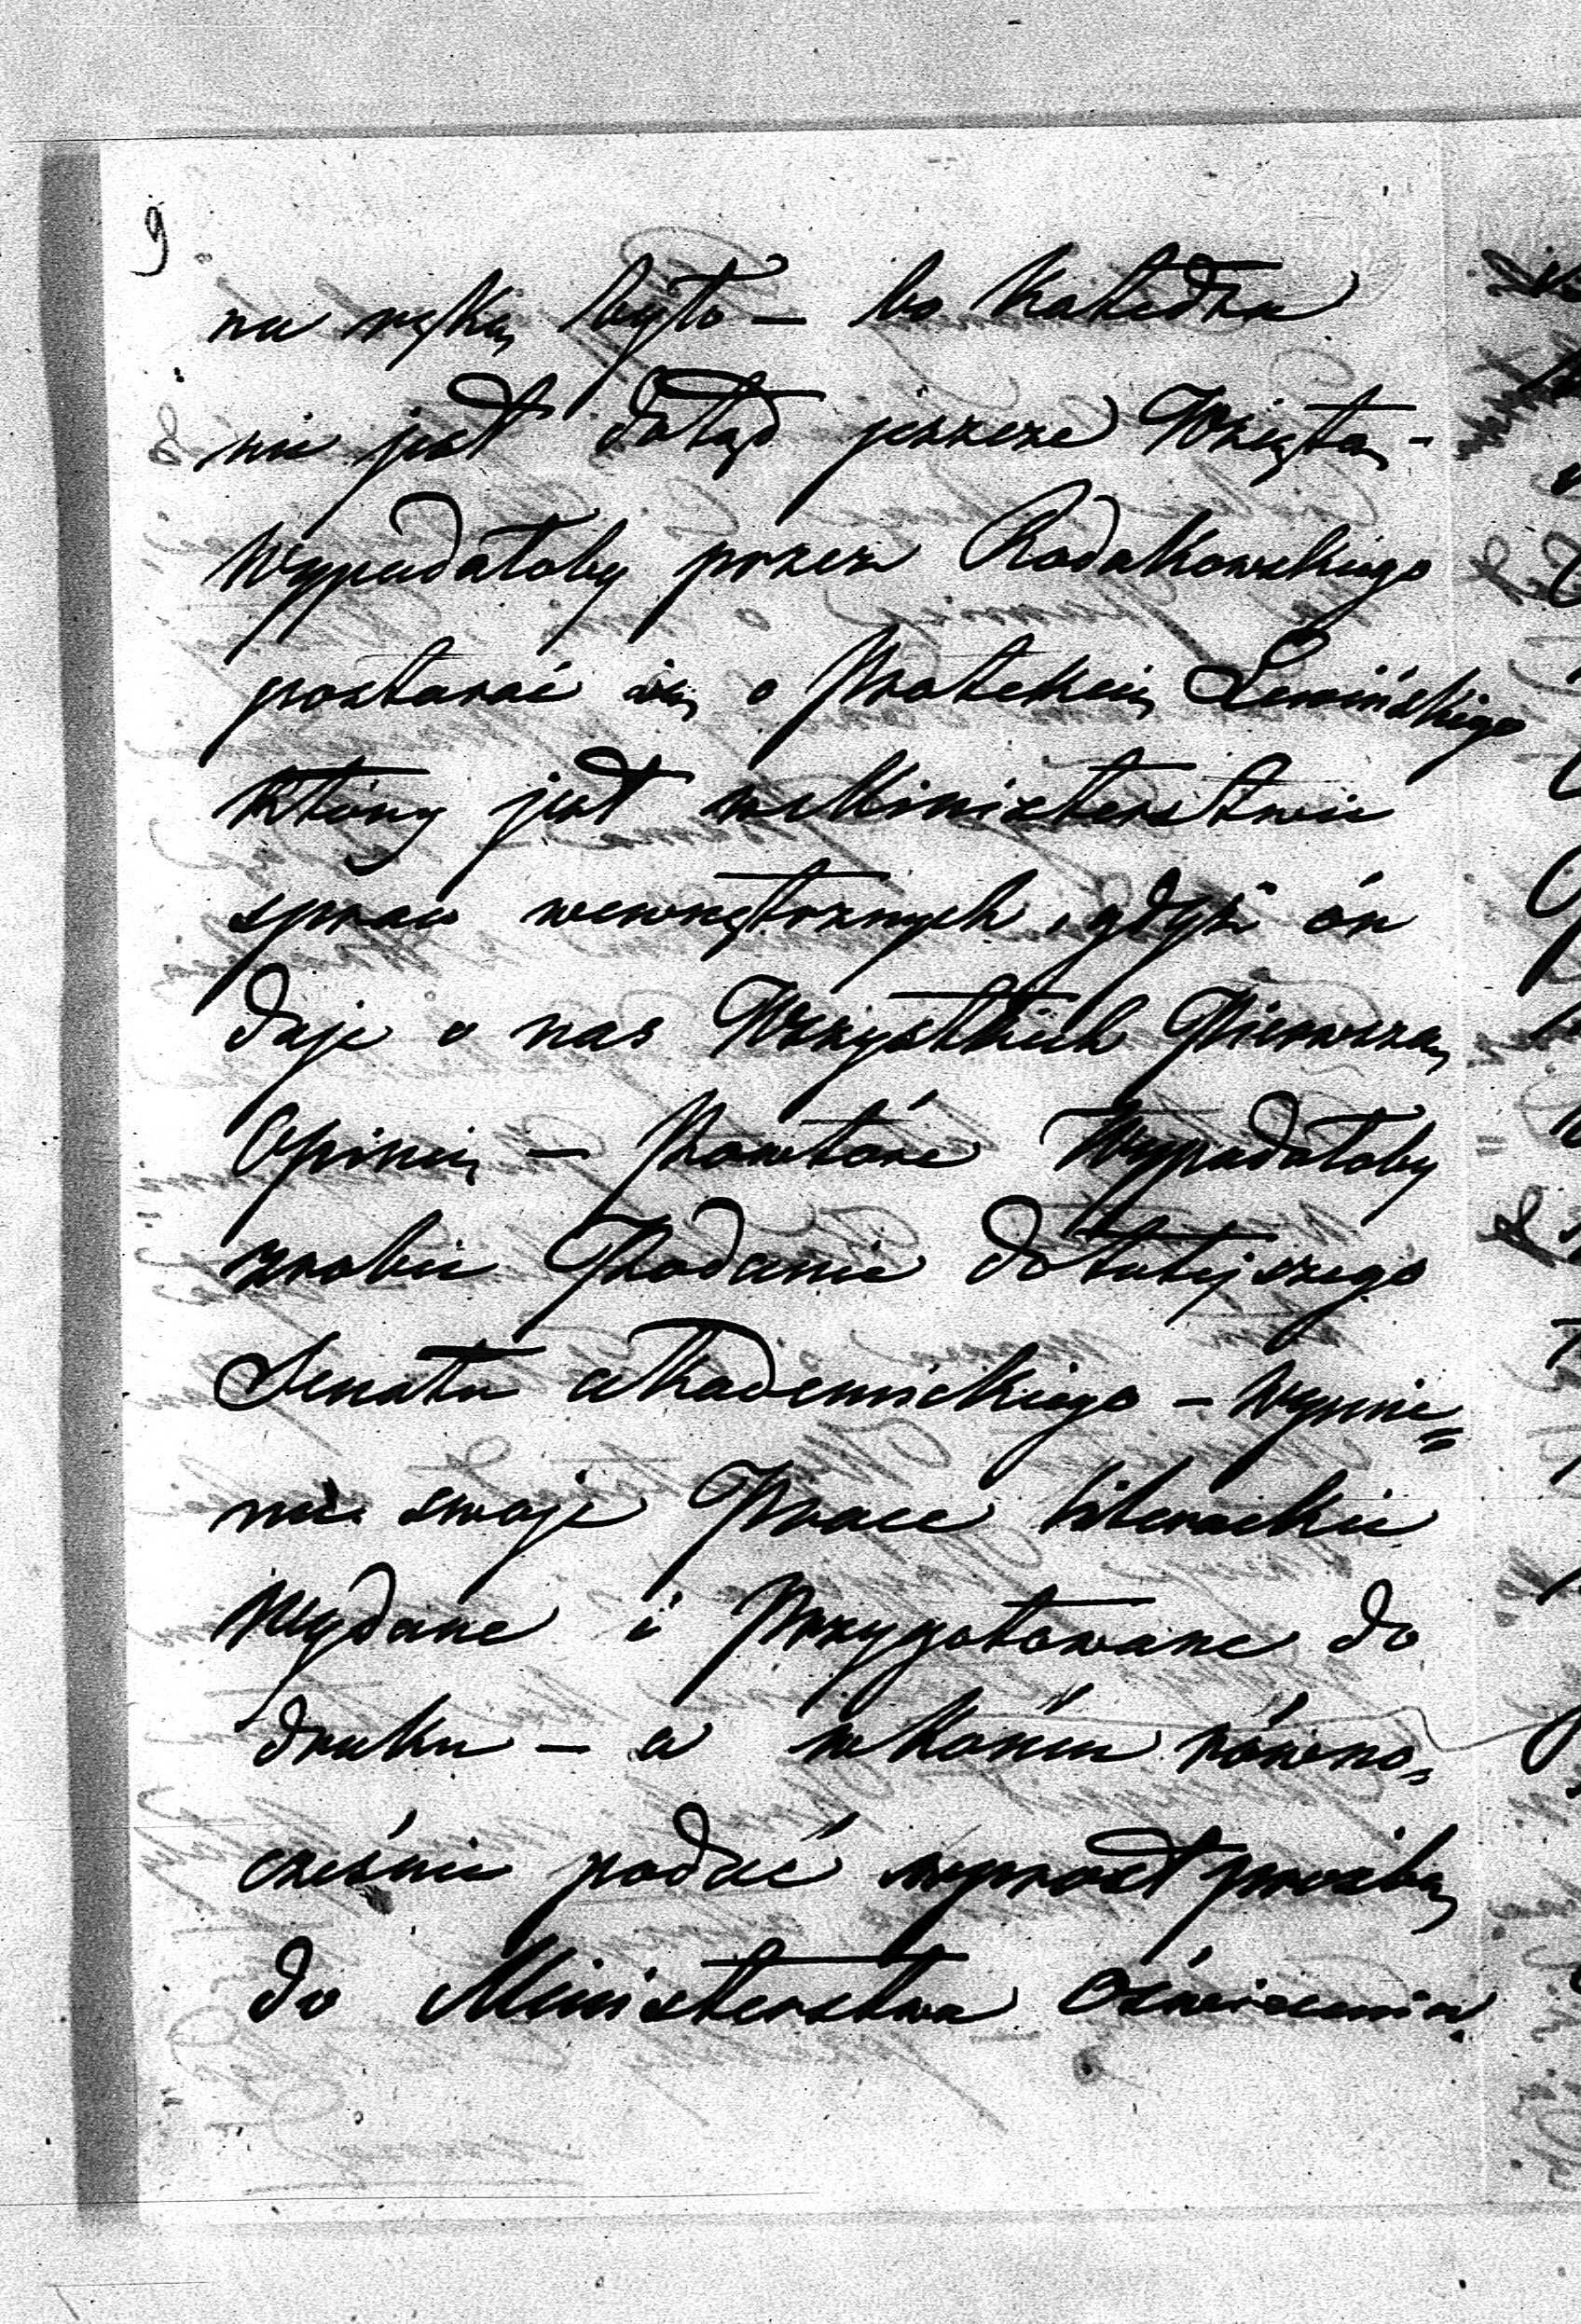 9
na rękę było – bo Katedra
nie jest dotąd jeszcze Wziętą –
Wypadałoby przez Rodakowskiego
postarać się o Protekcię
który jest w Ministerstwie
spraw wewnętrznych, gdyż ón
daje o nas Wszystkich Pierwszą
Opinię – Powtóre Wypadałoby
zrobić Podanie do tutejszego
Senatu Akademickiego – wymie=
nić swoje Prace Literackie
Wydane i Przygotowane do
druku – a w końcu równo„
cześnie podać wprost prośbę
do Ministerstwa Oświecenia